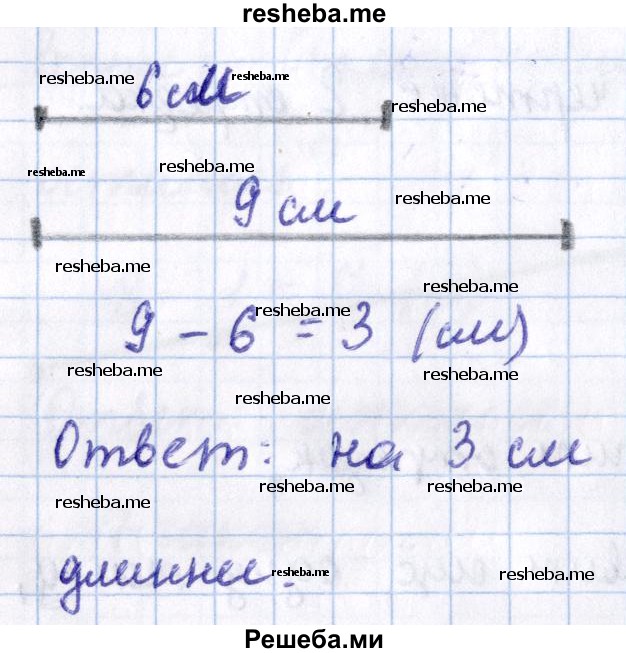 resheba.me
6 см
resheba.me resheba.me
resheba.me
resheba.me resheba.me
9 см
resheba.me
resheba.me
resheba.me
9 - 6 = 3 (см)
resheba.me
resheba.me resheba.me
resheba.me
Ответ: на 3 см
resheba.me resheba.me
resheba.me
длиннее.
resheba.me resheba.me
Решеба.ми